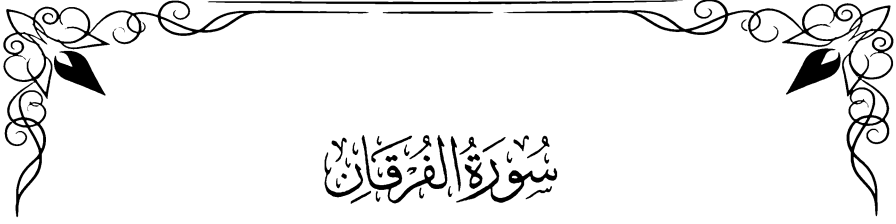 سُورَةُ الفُرْقَانِ